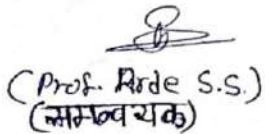 (Prof. Arde S.S.)
(समन्वयक)